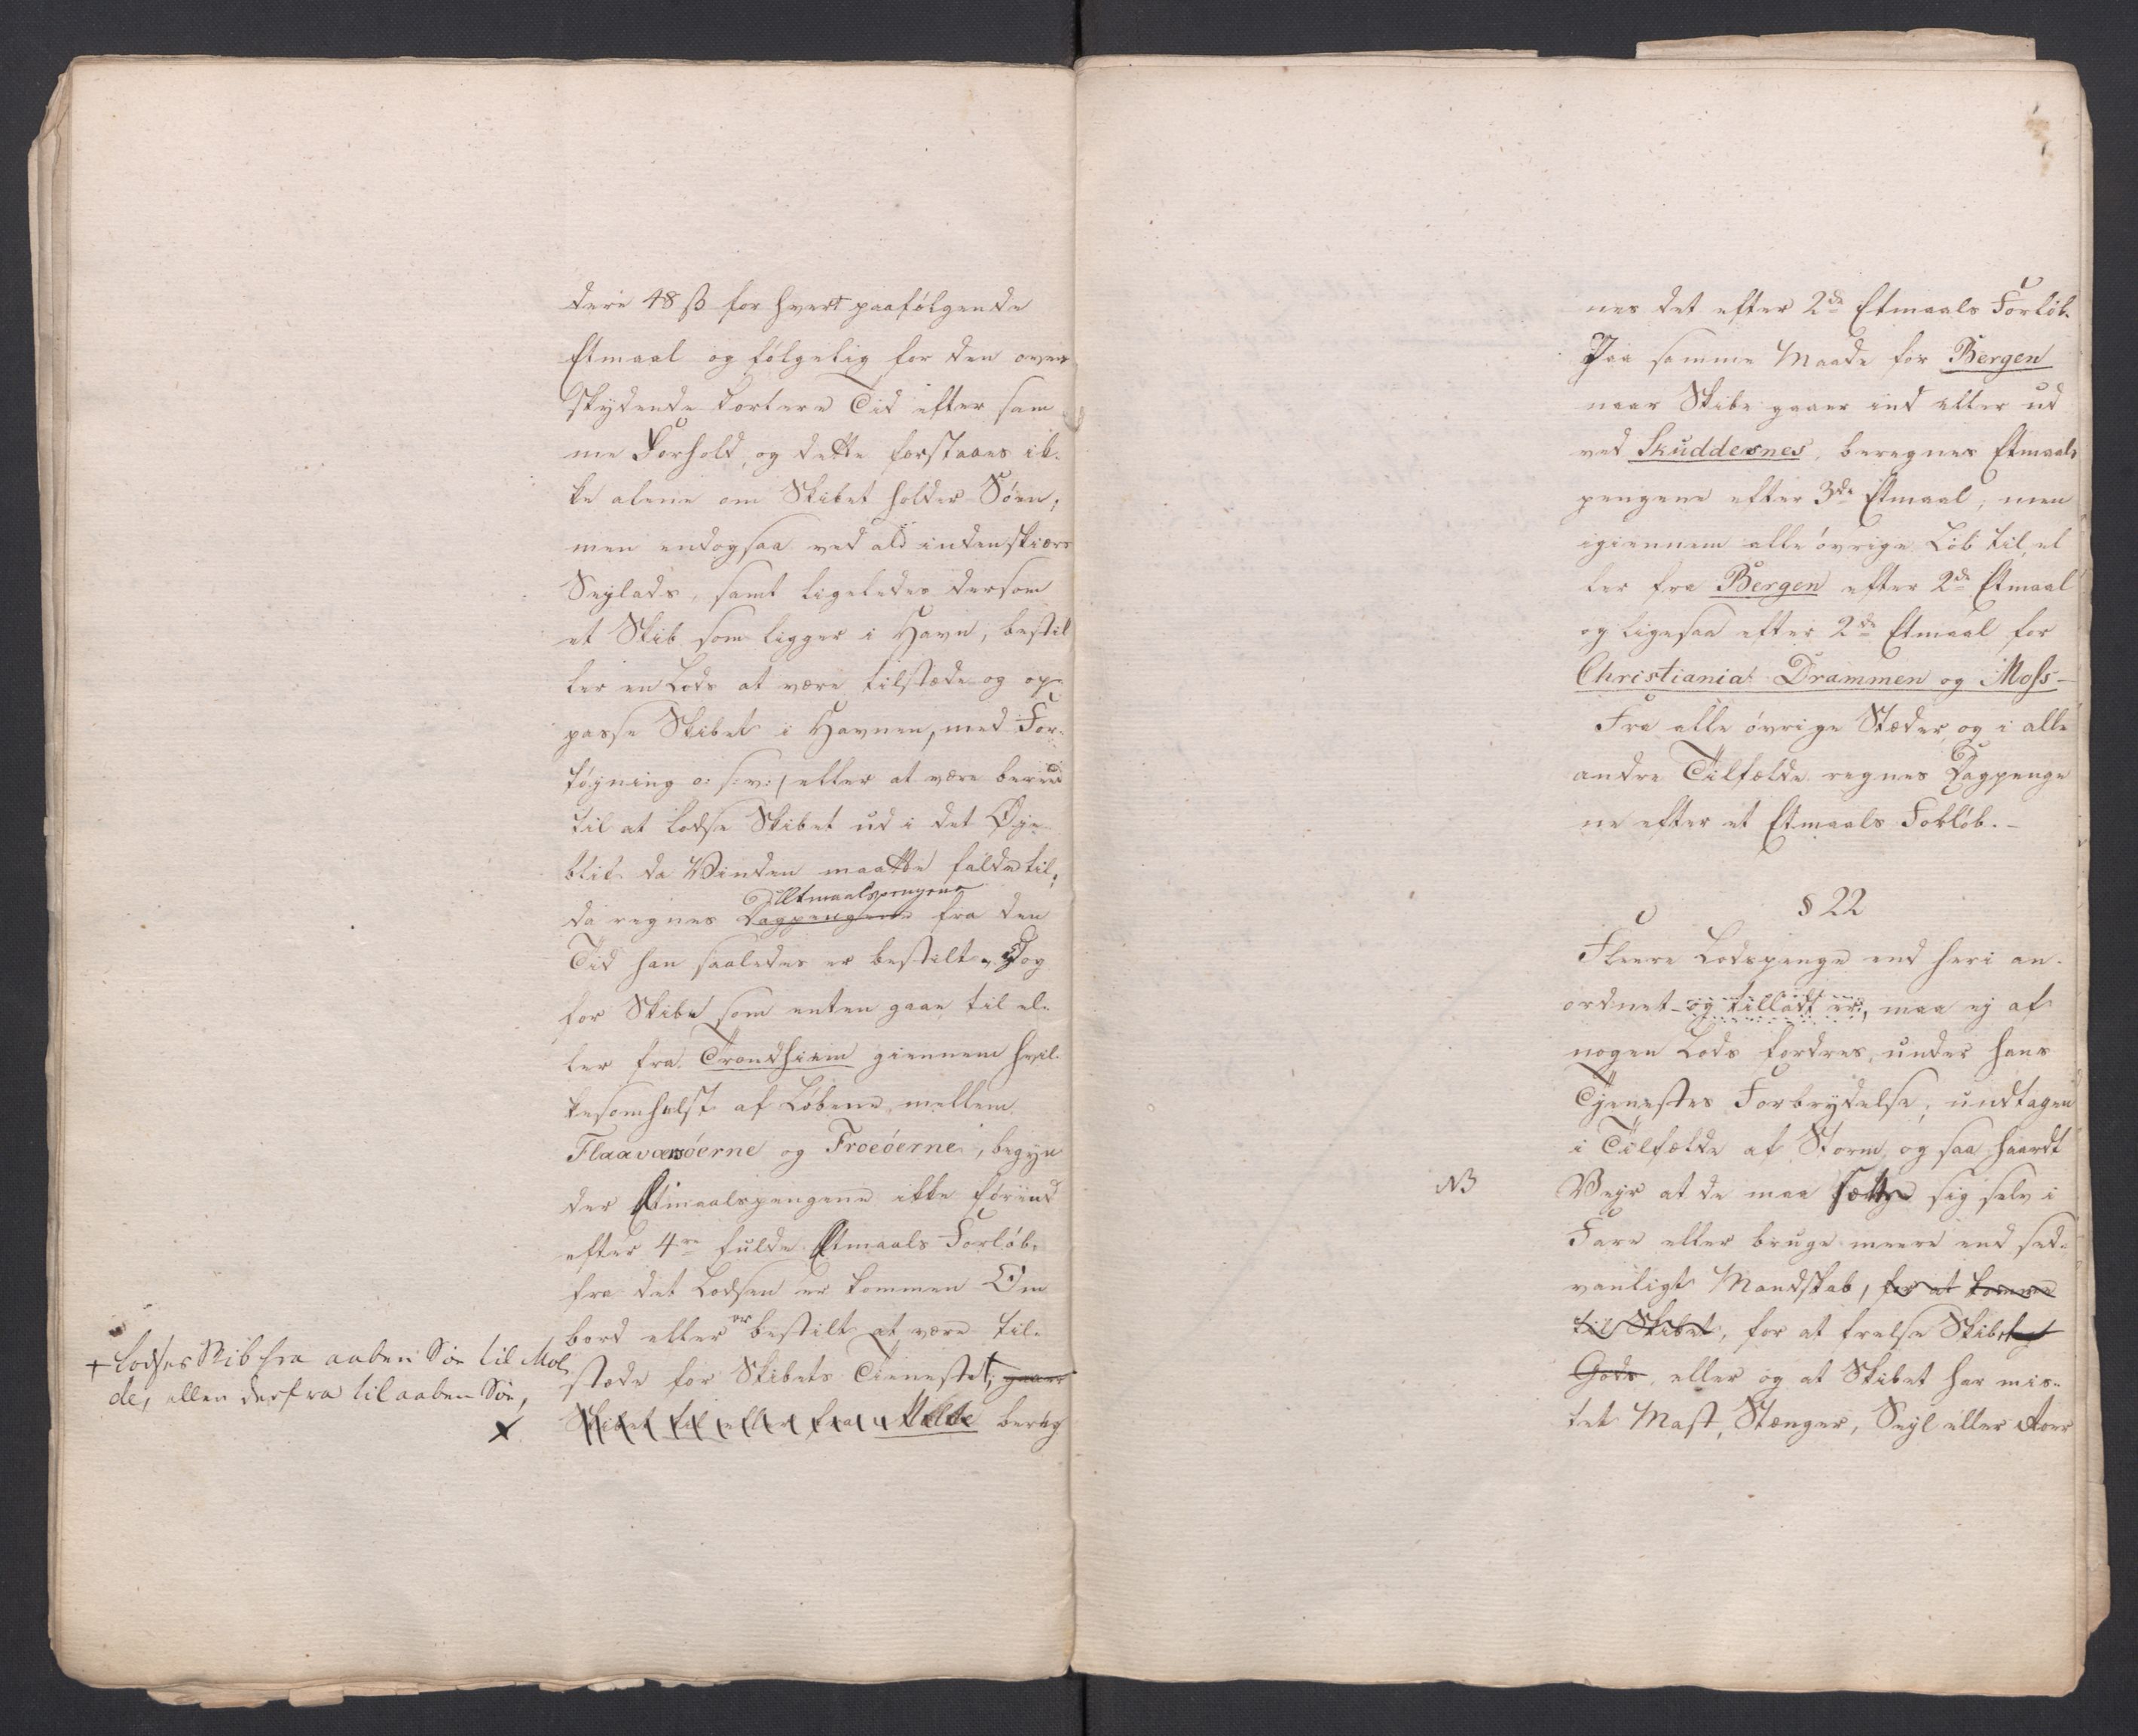 dere 48 ß for hvert paafölgende
Etmaal og fölgelig for den over
skydende kortere Tid efter sam
me Forhold, og dette forstaaes ik-
ke alene om Skibet holder Söen,
men endogsaa ved ald indenskiærs
Seylads, samt ligeledes dersom
et Skib som ligger i Havn, bestil
ler en Lods at være tilstæde og op-
passe Skibet i Havnen, med For-
töyning o: s: v: / eller at være bereed
til at lodse Skibet ud i det Øye-
blik da Vinden maatte falde til,
Etmaalspengene
da regnes Dagpengene fra den
Tid han saaledes er bestilt. Dog
for Skibe som enten gaae til el-
ler fra Trondhiem giennem hvil-
kesomhelst af Löbene mellem
Flaaværöerne og Froeöerne, begyn
der Etmaalspengene ikke förend
efter 4re fulde Etmaals Forlöb,
fra det Lodsen er kommen Om
bord eller er bestilt at være til-
stæde for Skibets Tieneste †, gaaer
Skibet til eller fra Molde bereg
+ lodses Skib fra aaben Söe til Mol
de, eller derfra til aaben Söe,
x
nes det efter 2de Etmaals Forlöb.
Paa samme Maade for Bergen
naar Skibe gaaer ind eller ud
ved Skuddesnes, beregnes Etmaals
pengene efter 3de Etmaal, men
igiennem alle övrige Löb til el
ler fra Bergen efter 2de Etmaal
og ligesaa efter 2de Etmaal for
Christiania Drammen og Moss-
Fra alle övrige Stæder og i alle
andre Tilfælde regnes Dagpenge
ne efter et Etmaals Forlöb.-
§ 22
Fleere Lodspenge end heri an-
ordnet og tilladt er, maa ej af
nogen Lods fordres, under hans
Tjenestes Forbrydelse, undtagen
i Tilfælde af Storm og saa haardt
NB
Vejr at de maa sætte sig selv i
Fare eller bruge meere end sæd-
vanligt Mandskab, for at komme
til Skibet, for at frelse Skib og
Gods, eller og at Skibet har mis-
tet Mast, Stænger, Seyl eller Roer